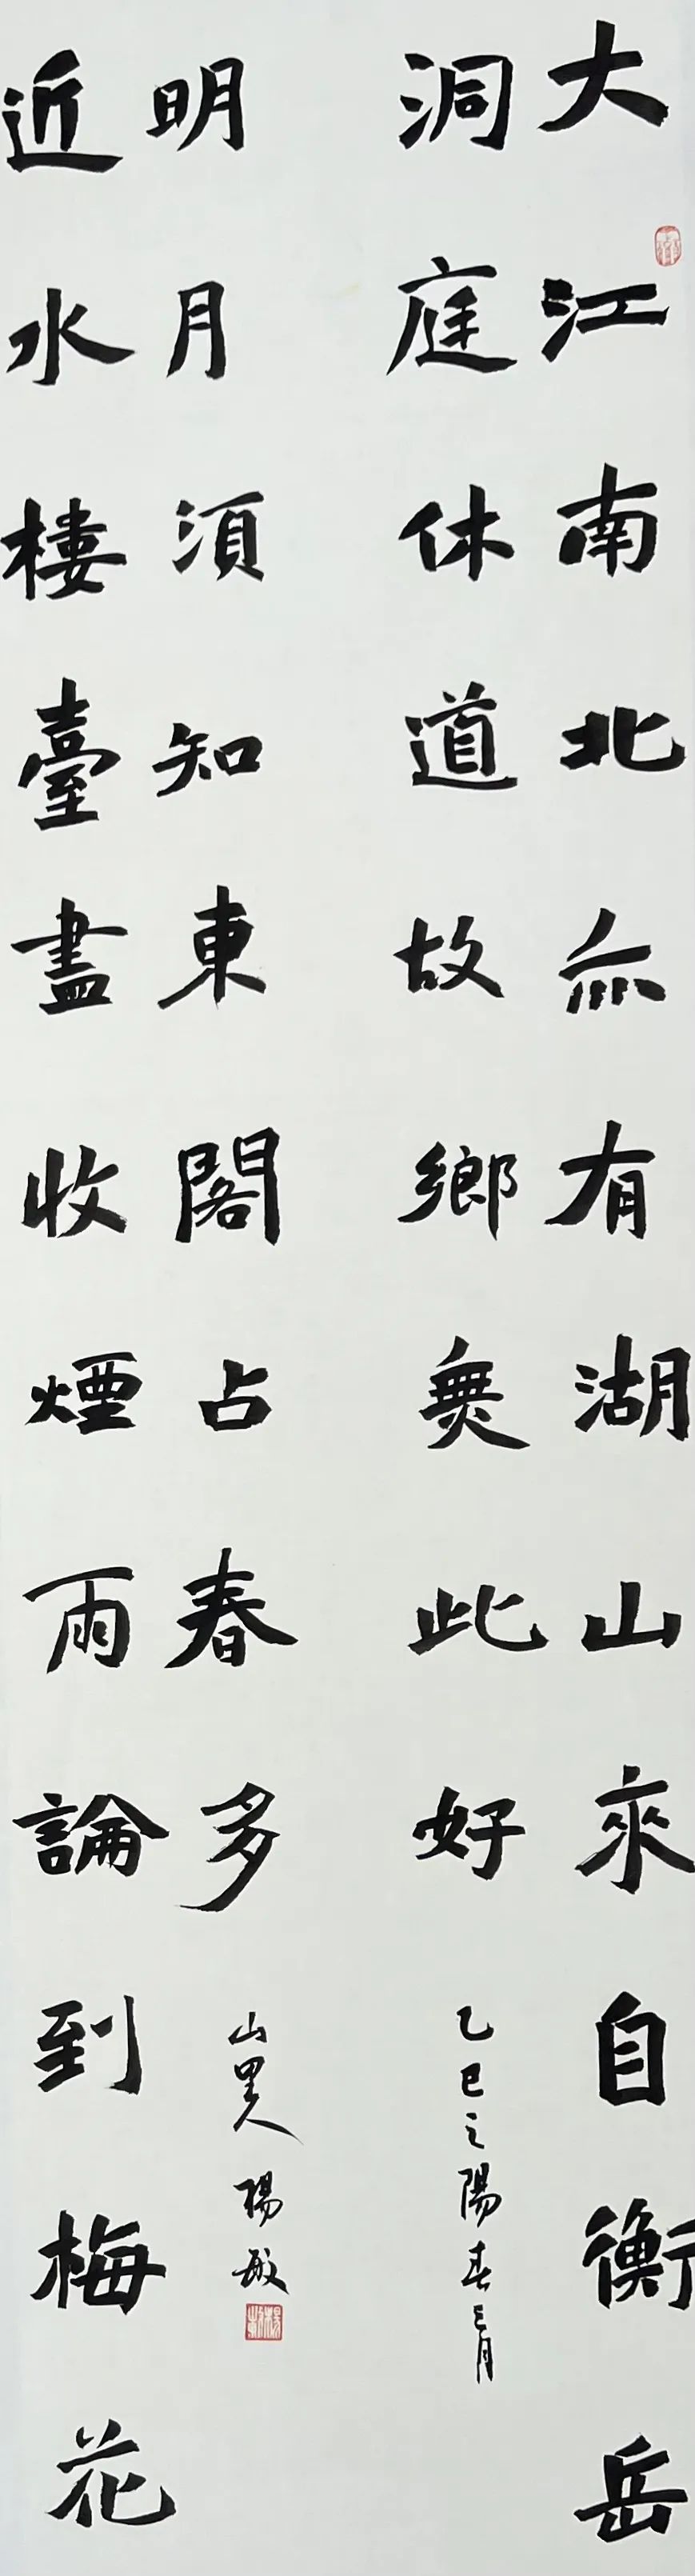 大江南北亦有湖山來自衡岳
洞庭休道故鄉無此好
乙巳之陽春三月
近水樓臺盡收煙雨論到梅花
明月須知東閣占春多
山里人 楊敏